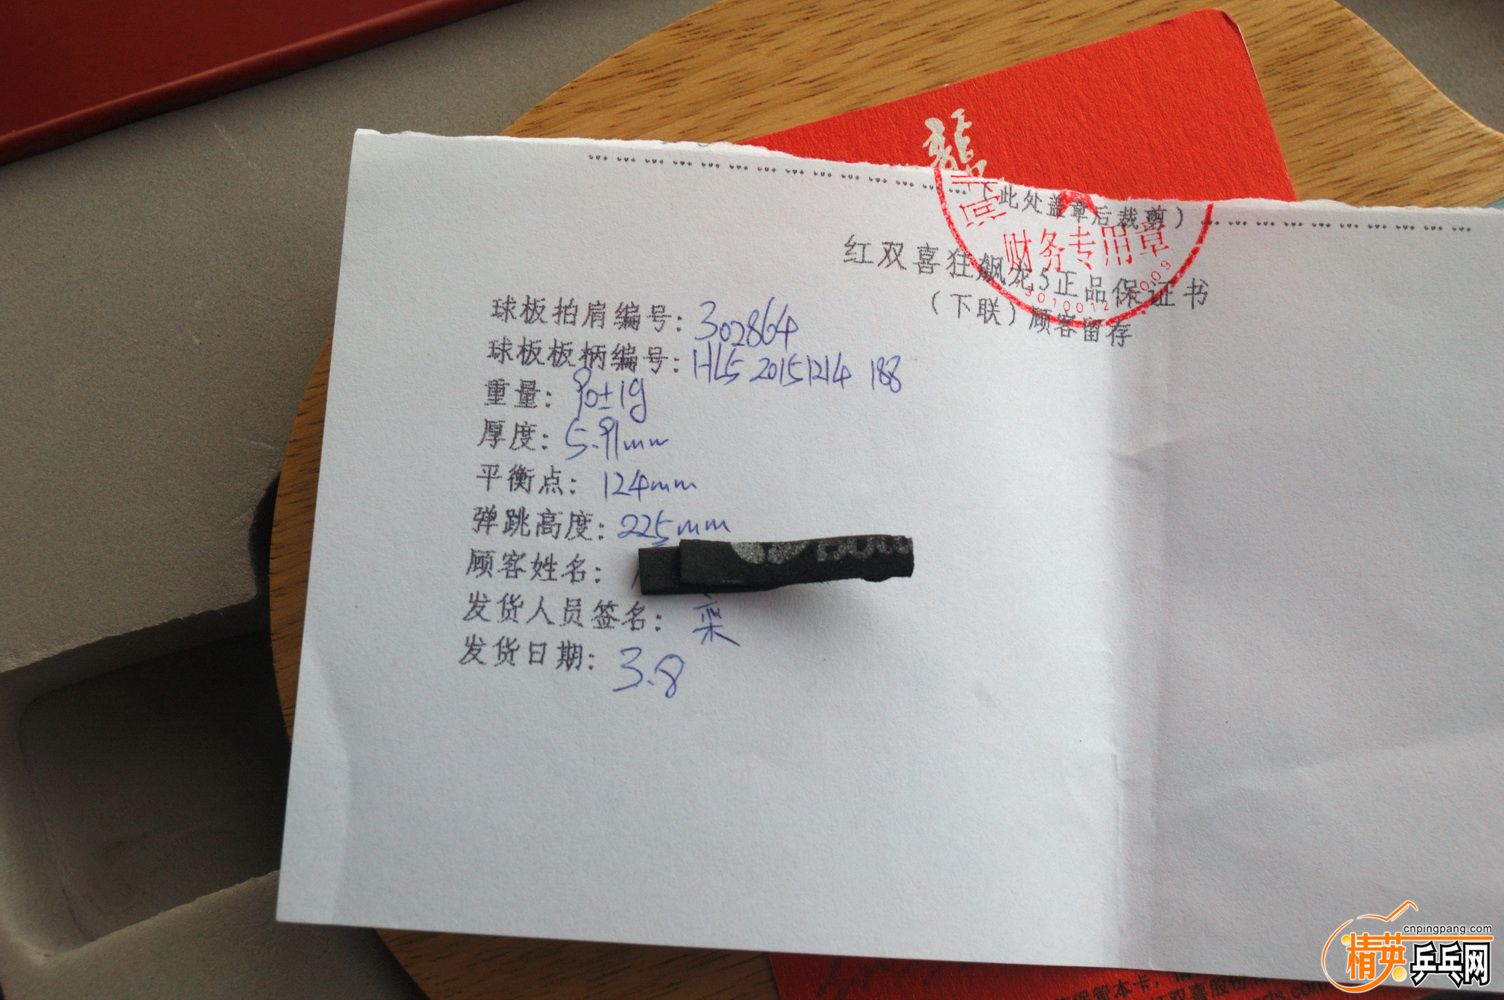 龍
(此处盖章后裁剪)
财务专用章
红双喜狂飙龙5正品保证书
(下联)顾客留存
球板拍肩编号: 302864
球板板柄编号: HL5 20151214 188
重量: 90±1g
厚度: 5.91mm
平衡点: 124mm
弹跳高度: 225mm
顾客姓名:
发货人员签名: 采
发货日期: 3.8
cnpingpang.com
精英乒乓网